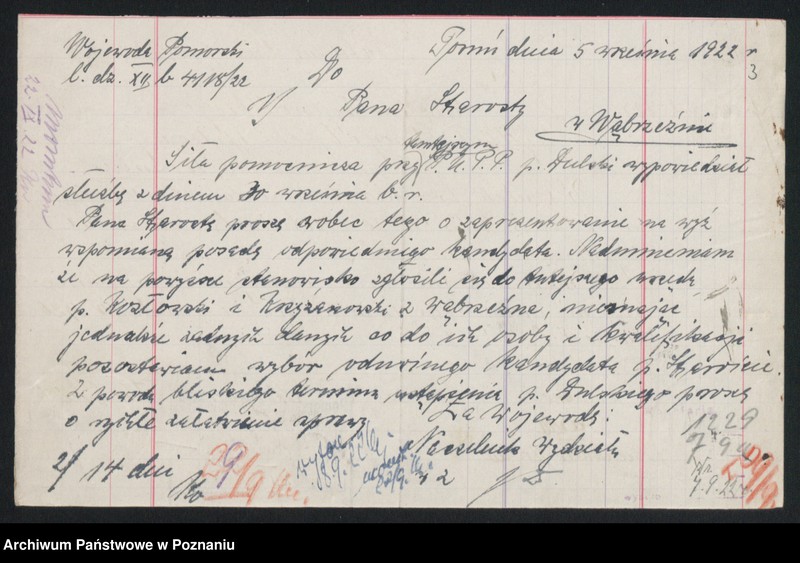 Wojewoda Pomorski
l. dz. XII b 4118/22
Toruń dnia 5 września 1922 r
3
Do
1/ Pana Starosty
w Wąbrzeźnie
tamtejszym
Siła pomocnicza przy P.U.P.P. p. Dulski wypowiedział
służbę z dniem 30 września b. r.
Pana Starostę proszę wobec tego o zaprezentowanie na wyż
wspomnianą posadę odpowiedniego kandydata. Nadmieniam
że na powyższe stanowisko zgłosili się do tutejszego urzędu
p. Kozłowski i Krzyżanowski z Wąbrzeźna, nie mając
jednakże żadnych danych co do ich osoby i kwalifikacji
pozostawiam wybór odnośnego kandydata p. Staroście.
Z powodu bliskiego terminu ustąpienia p. Dulskiego proszę
o rychłe załatwienie sprawy
Za Wojewodę:
Naczelnik Wydziału
2/ 14 dni
29/9
1229
7.9.22
Archiwum Państwowe w Poznaniu